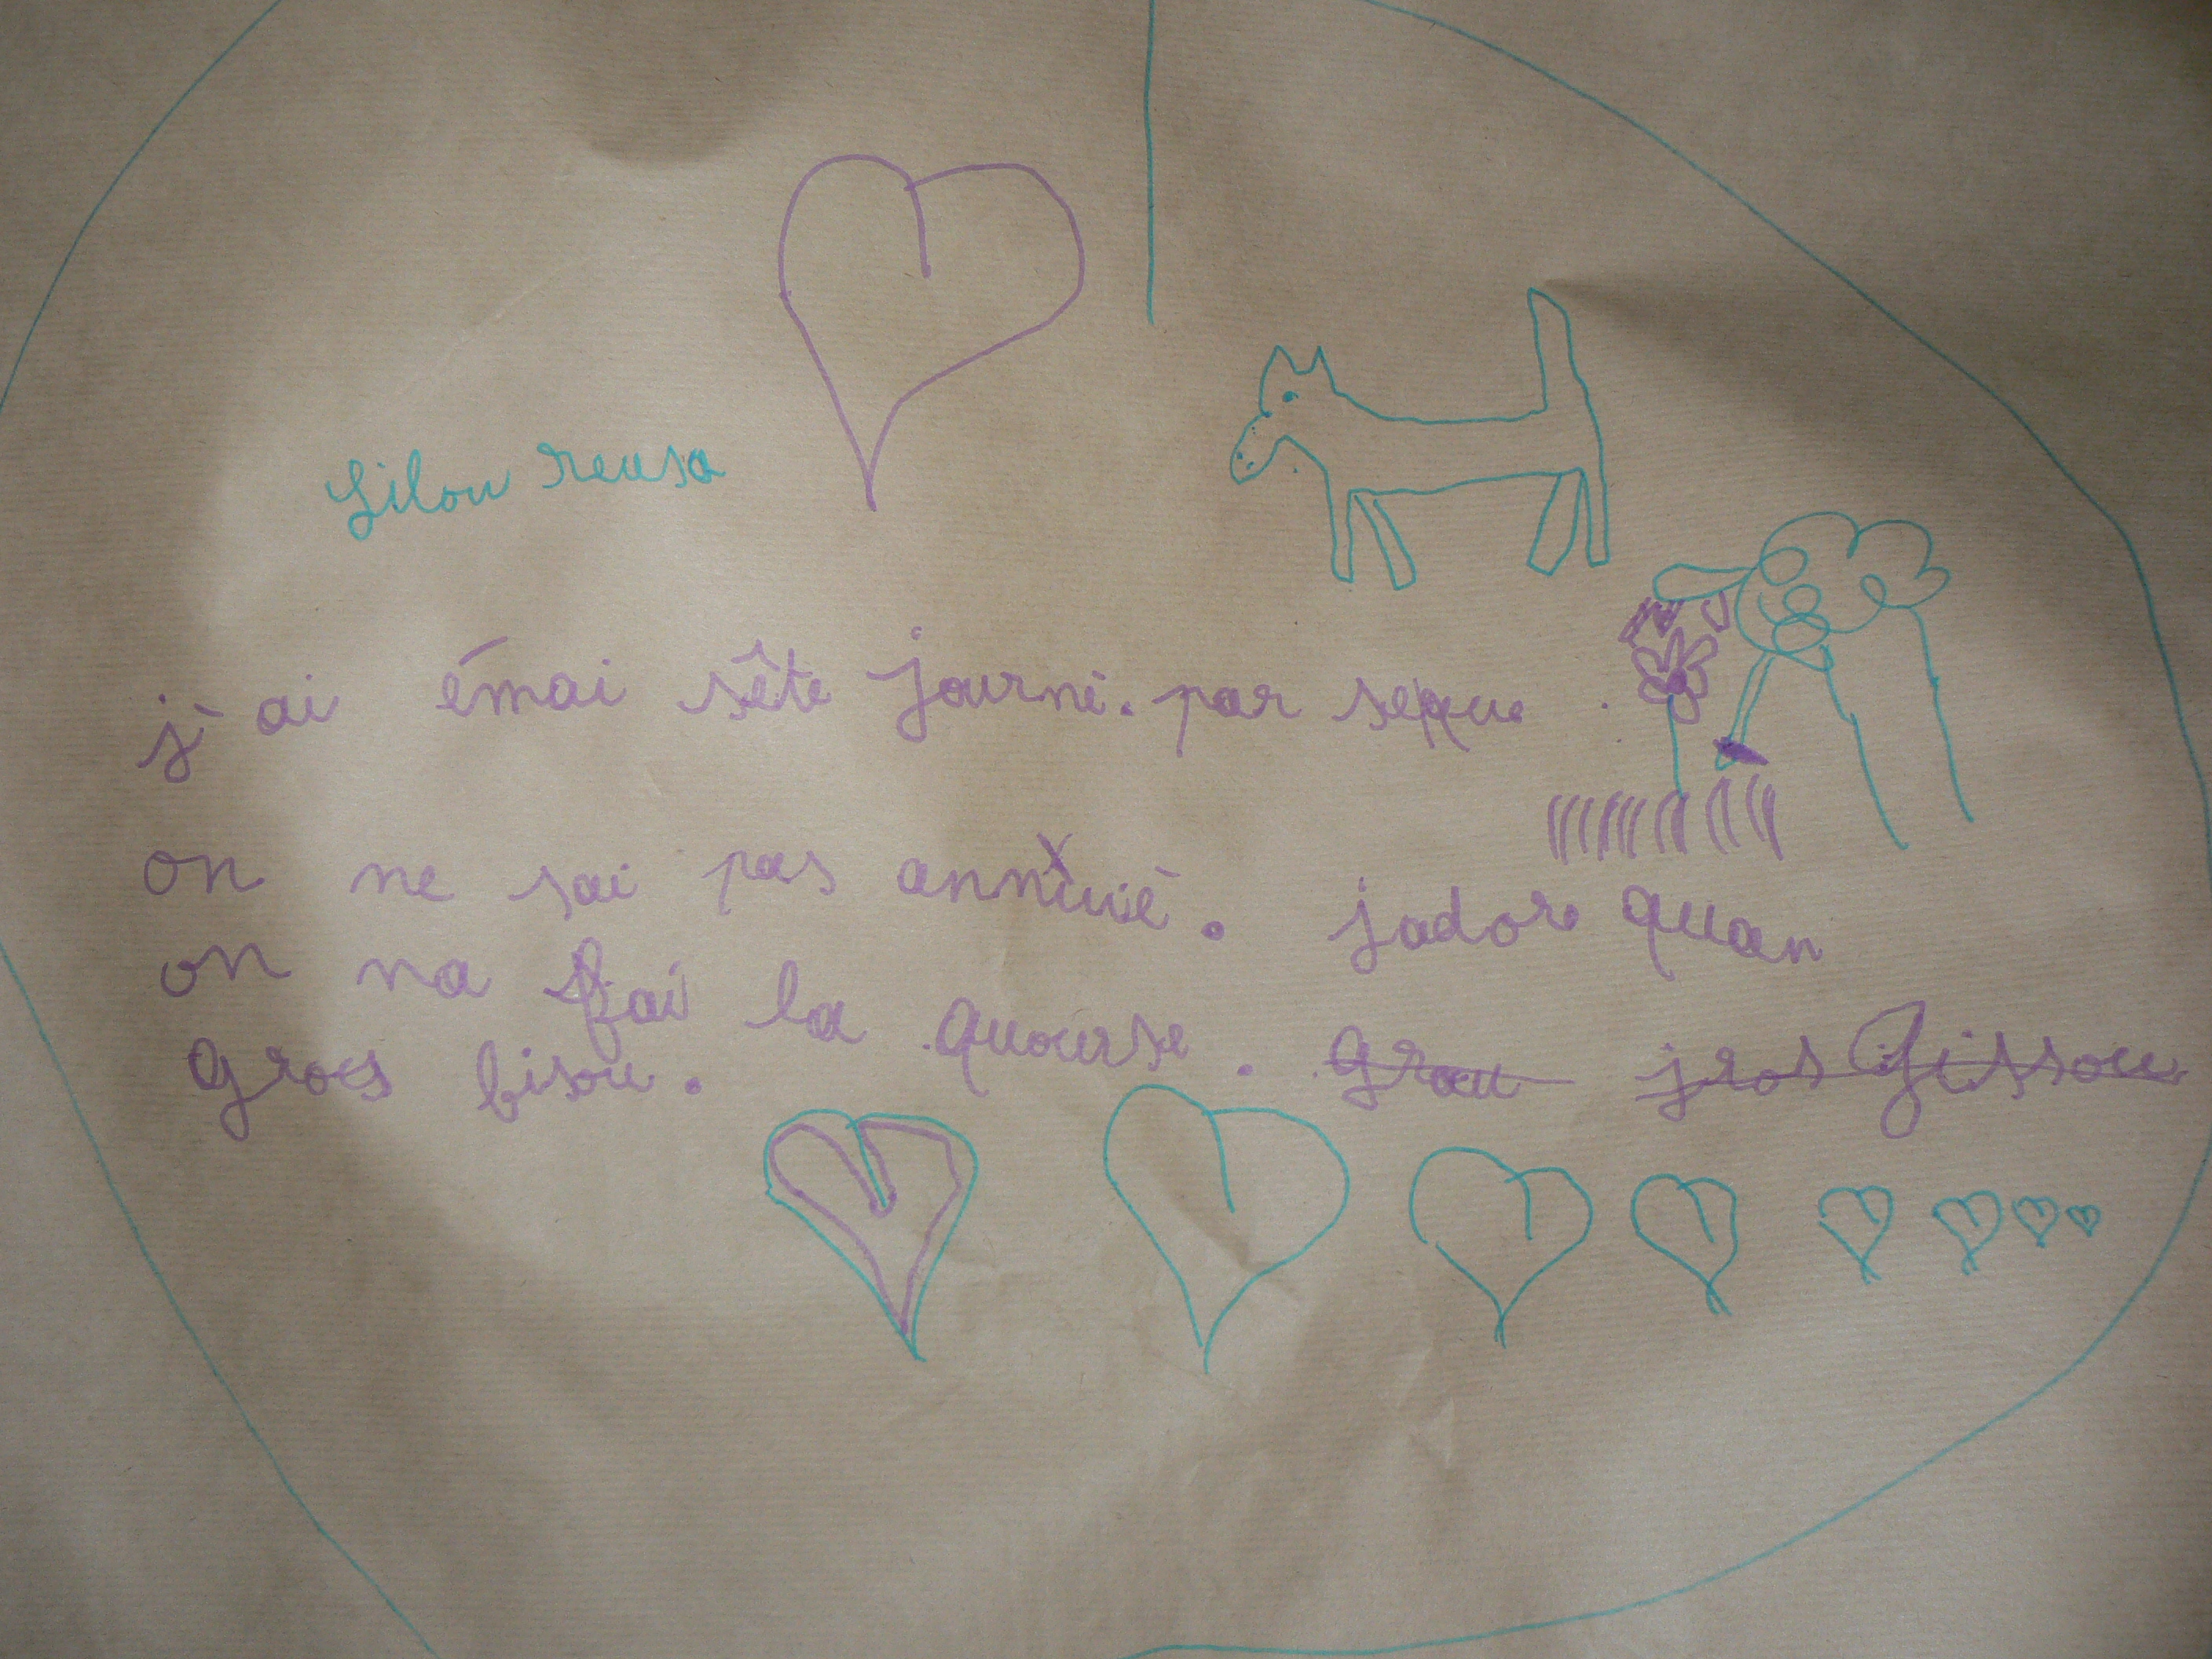 Lilou reusa
j'ai émai sête journé. par seque.
on ne sai pas annuié. jador quan
on na fai la quourse. grou jros Gissou
gros bisou.